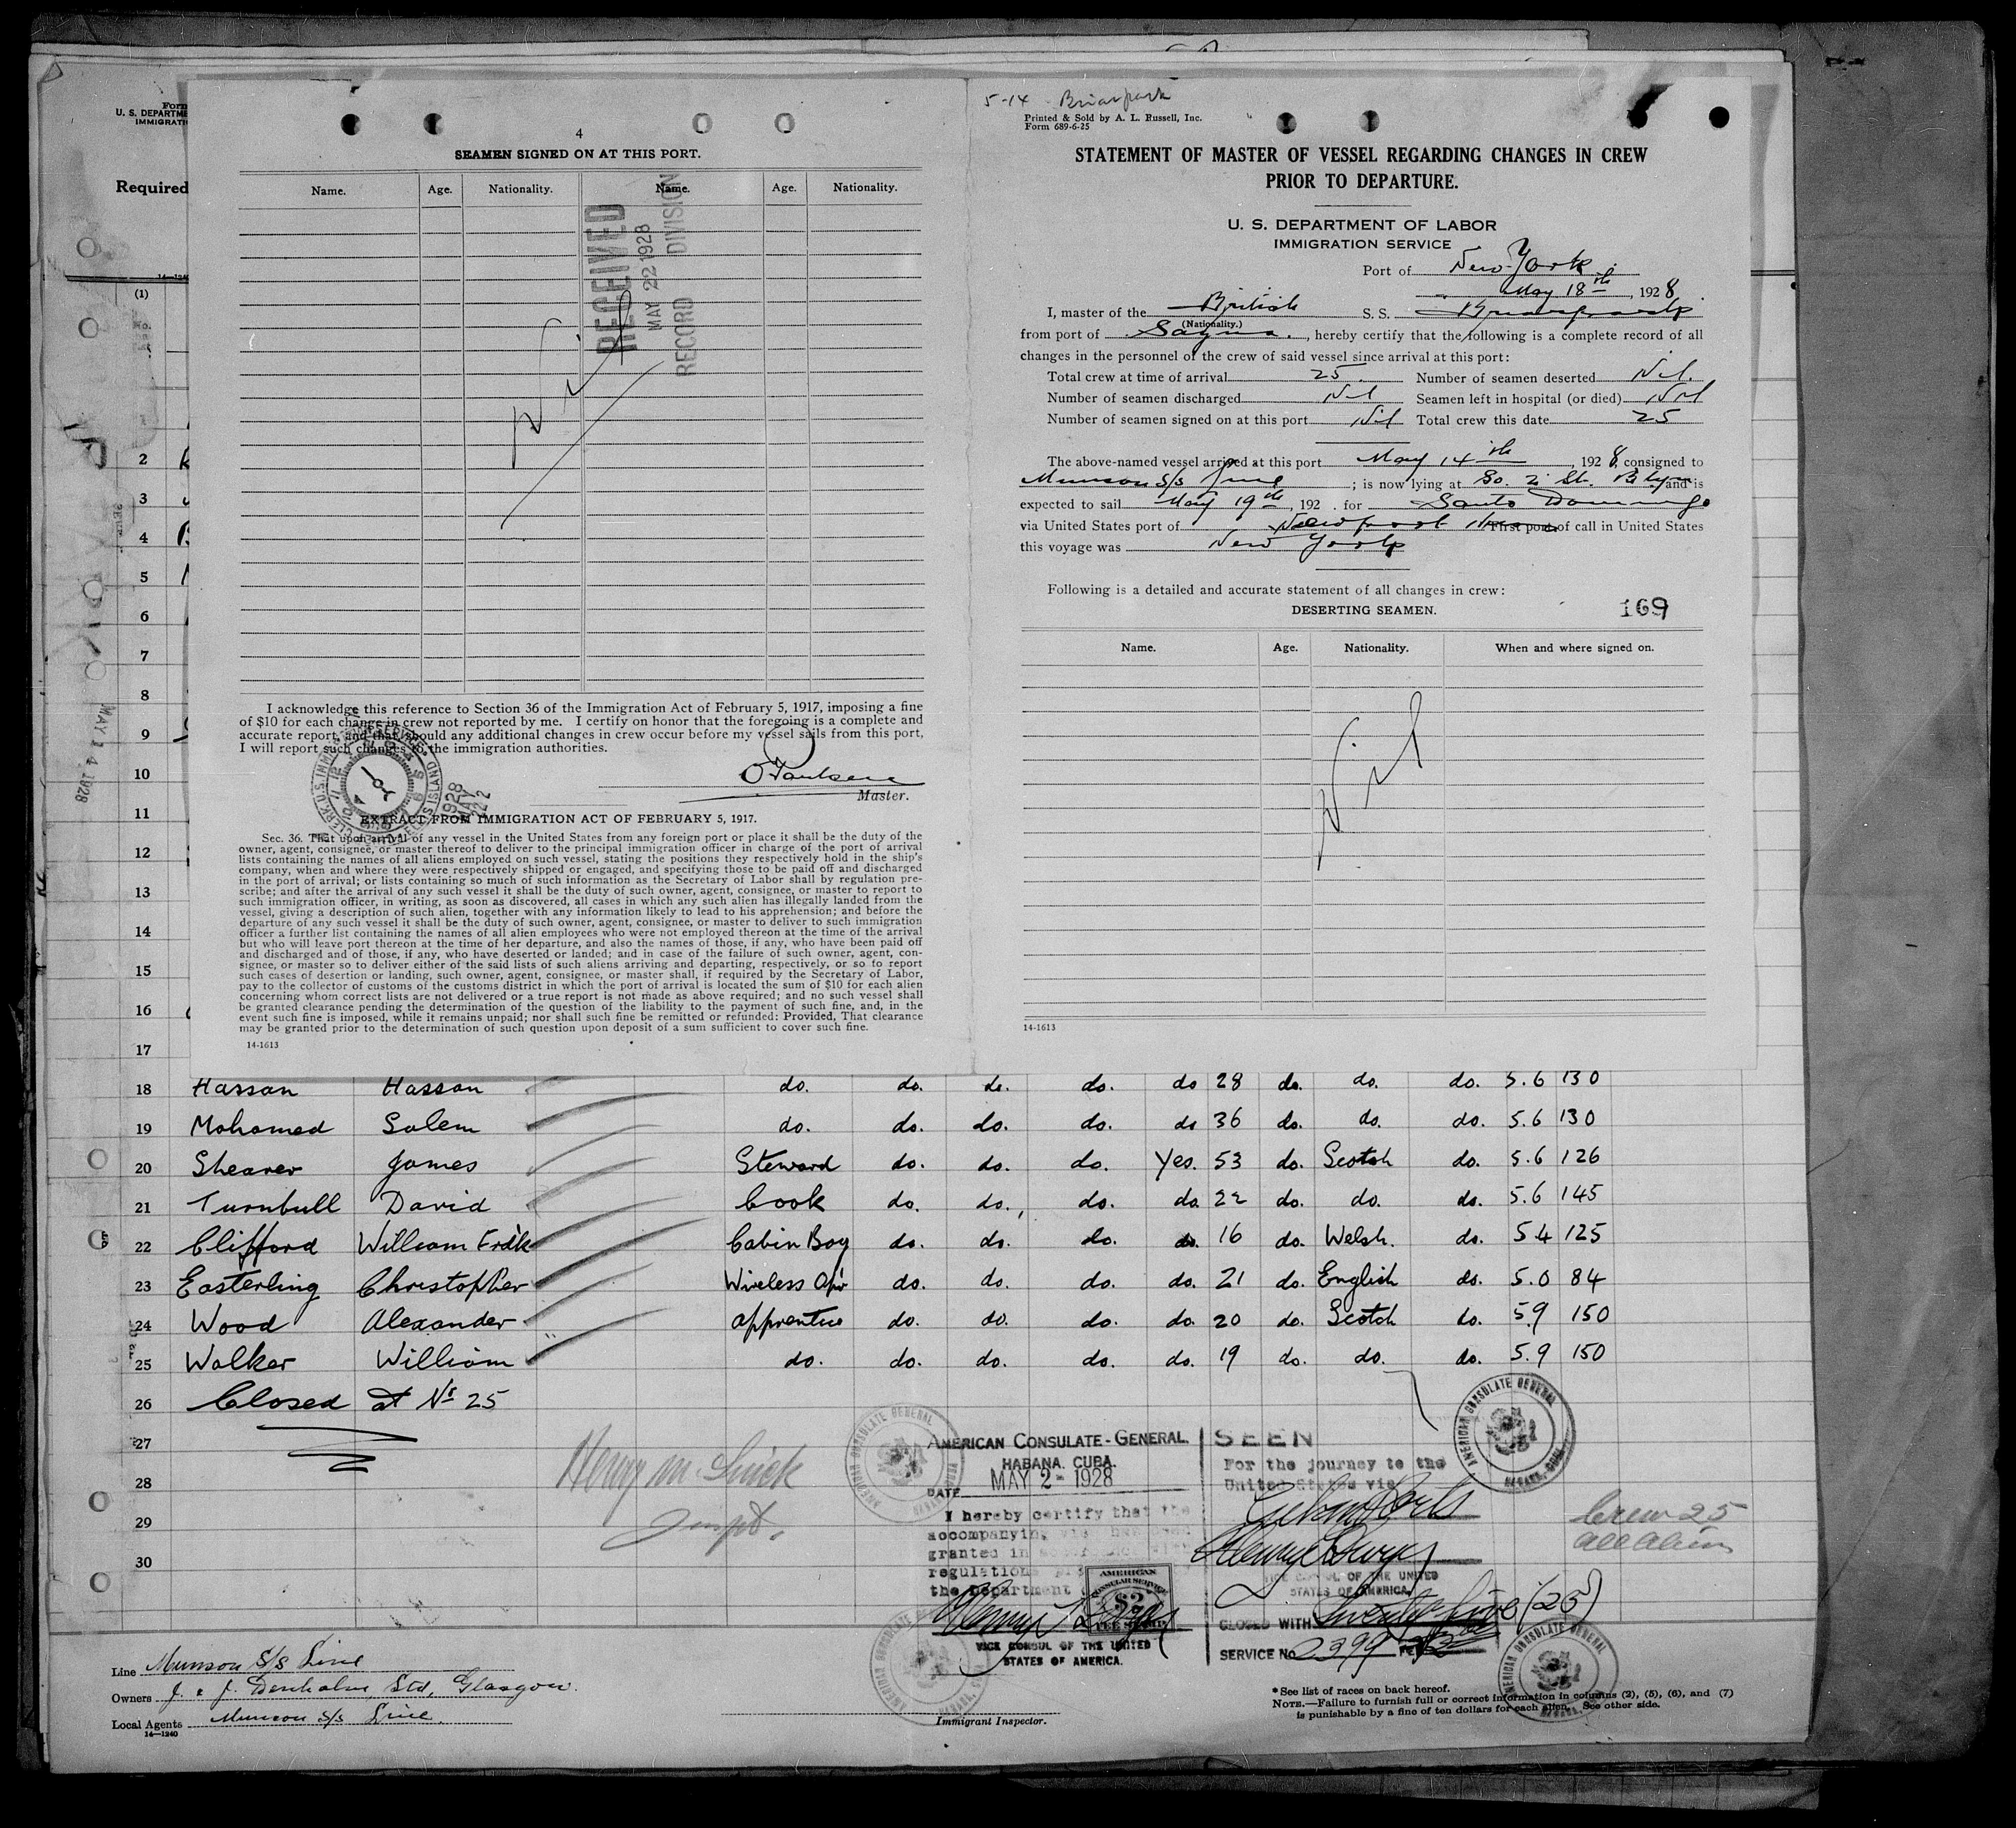 Form
U. S. DEPARTME
IMMIGRATI
Required
14—1240
(1)
2
3
4
5
6
7
8
9
10
11
12
13
14
15
16
17
MAY 14 1928
4
SEAMEN SIGNED ON AT THIS PORT.
Name. Age. Nationality. Name. Age. Nationality.
RECEIVED
MAY 22 1928
RECORD DIVISION
Nil
I acknowledge this reference to Section 36 of the Immigration Act of February 5, 1917, imposing a fine
of $10 for each change in crew not reported by me. I certify on honor that the foregoing is a complete and
accurate report, and that should any additional changes in crew occur before my vessel sails from this port,
I will report such changes to the immigration authorities.
Master.
1928
MAY
22
EXTRACT FROM IMMIGRATION ACT OF FEBRUARY 5, 1917.
Sec. 36. That upon arrival of any vessel in the United States from any foreign port or place it shall be the duty of the
owner, agent, consignee, or master thereof to deliver to the principal immigration officer in charge of the port of arrival
lists containing the names of all aliens employed on such vessel, stating the positions they respectively hold in the ship's
company, when and where they were respectively shipped or engaged, and specifying those to be paid off and discharged
in the port of arrival; or lists containing so much of such information as the Secretary of Labor shall by regulation pre-
scribe; and after the arrival of any such vessel it shall be the duty of such owner, agent, consignee, or master to report to
such immigration officer, in writing, as soon as discovered, all cases in which any such alien has illegally landed from the
vessel, giving a description of such alien, together with any information likely to lead to his apprehension; and before the
departure of any such vessel it shall be the duty of such owner, agent, consignee, or master to deliver to such immigration
officer a further list containing the names of all alien employees who were not employed thereon at the time of the arrival
but who will leave port thereon at the time of her departure, and also the names of those, if any, who have been paid off
and discharged and of those, if any, who have deserted or landed; and in case of the failure of such owner, agent, con-
signee, or master so to deliver either of the said lists of such aliens arriving and departing, respectively, or so to report
such cases of desertion or landing, such owner, agent, consignee, or master shall, if required by the Secretary of Labor,
pay to the collector of customs of the customs district in which the port of arrival is located the sum of $10 for each alien
concerning whom correct lists are not delivered or a true report is not made as above required; and no such vessel shall
be granted clearance pending the determination of the question of the liability to the payment of such fine, and, in the
event such fine is imposed, while it remains unpaid; nor shall such fine be remitted or refunded: Provided, That clearance
may be granted prior to the determination of such question upon deposit of a sum sufficient to cover such fine.
14-1613
5-14 Briarpark
Printed & Sold by A. L. Russell, Inc.
Form 689-6-25
STATEMENT OF MASTER OF VESSEL REGARDING CHANGES IN CREW
PRIOR TO DEPARTURE.
U. S. DEPARTMENT OF LABOR
IMMIGRATION SERVICE
Port of New York
May 18th, 1928
I, master of the British S. S. Briarpark
(Nationality.)
from port of Sagua., hereby certify that the following is a complete record of all
changes in the personnel of the crew of said vessel since arrival at this port:
Total crew at time of arrival 25. Number of seamen deserted Nil.
Number of seamen discharged Nil Seamen left in hospital (or died) Nil
Number of seamen signed on at this port Nil Total crew this date 25
The above-named vessel arrived at this port May 14th, 1928, consigned to
Munson S/S Line; is now lying at So. 2 St. Bklyn and is
expected to sail May 19th, 192 . for Santo Domingo
via United States port of Newport First port of call in United States
this voyage was New York
Following is a detailed and accurate statement of all changes in crew:
DESERTING SEAMEN. 169
Name. Age. Nationality. When and where signed on.
Nil
14-1613
18 Hassan Hassan do. do. do. do. do 28 do. do. do. 5.6 130
19 Mohamed Salem do. do. do. do. do 36 do. do. do. 5.6 130
20 Shearer James Steward do. do. do. Yes. 53 do. Scotch do. 5.6 126
21 Turnbull David Cook do. do. do. do. 22 do. do. do. 5.6 145
22 Clifford William Fredk Cabin Boy do. do. do. do. 16 do. Welsh. do. 5.4 125
23 Easterling Christopher Wireless Opr do. do. do. do. 21 do. English do. 5.0 84
24 Wood Alexander apprentice do. do. do. do. 20 do. Scotch do. 5.9 150
25 Walker William do. do. do. do. do. 19 do. do. do. 5.9 150
26 Closed at No 25
27
28
29
30
AMERICAN CONSULATE-GENERAL.
HABANA, CUBA.
DATE MAY 2 - 1928
I hereby certify that the
accompanying visa has been
granted in accordance with
regulations
the Department
VICE CONSUL OF THE UNITED
STATES OF AMERICA.
AMERICAN
CONSULAR SERVICE
$2
FEE STAMP
SEEN
For the journey to the
United States via
New York
VICE CONSUL OF THE UNITED
STATES OF AMERICA
CLOSED WITH Twenty five (25)
SERVICE No 2399
AMERICAN CONSULATE GENERAL
HABANA, CUBA
Crew 25
all alien
Line Munson S/S Line
Owners J. & J. Denholm, Ltd, Glasgow.
Local Agents Munson S/S Line.
14—1240
Immigrant Inspector.
*See list of races on back hereof.
NOTE.—Failure to furnish full or correct information in columns (2), (5), (6), and (7)
is punishable by a fine of ten dollars for each alien. See other side.